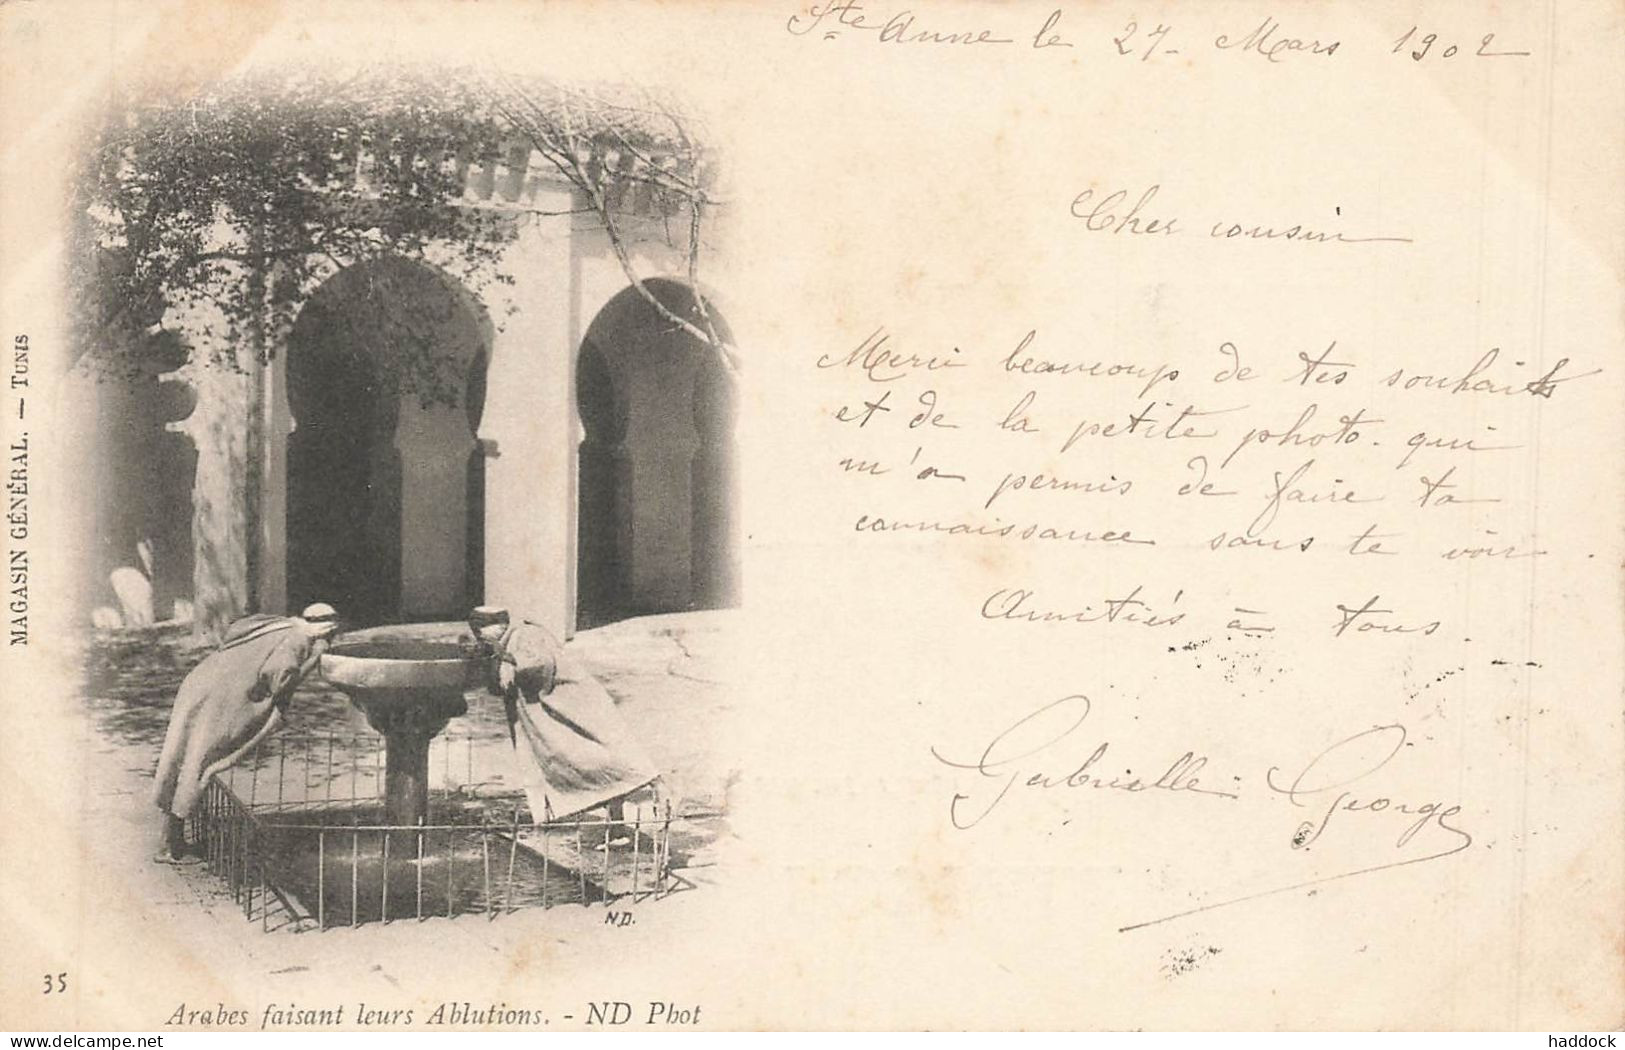 Ste Anne le 27 - Mars 1902
Cher cousin
Merci beaucoup de tes souhaits
et de la petite photo. qui
m'a permis de faire ta
connaissance sans te voir.
Amitiés à tous.
Gabrielle George
MAGASIN GÉNÉRAL. — TUNIS
N.D.
35
Arabes faisant leurs Ablutions. - ND Phot
delcampe.net
haddock